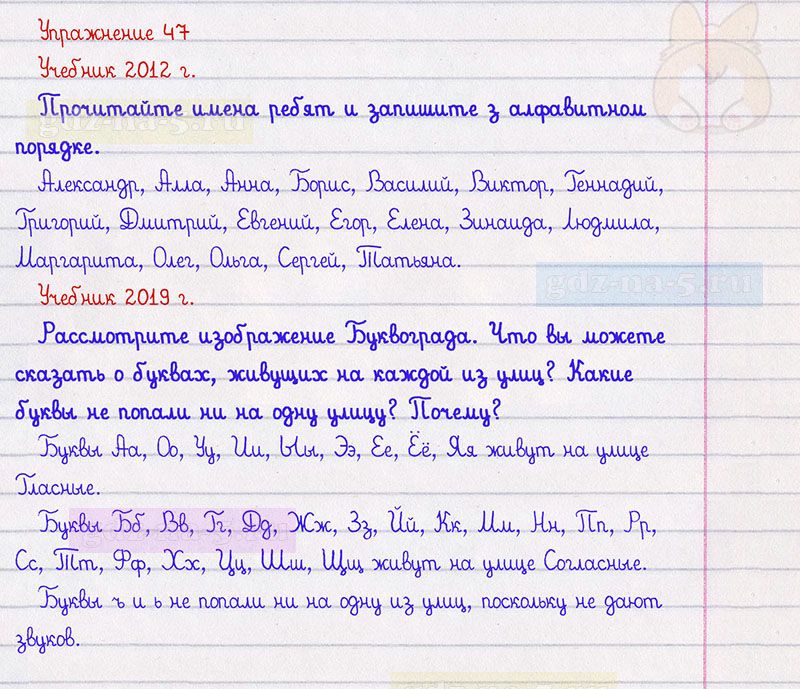 Упражнение 47
Учебник 2012 г.
Прочитайте имена ребят и запишите з алфавитном
порядке.
Александр, Алла, Анна, Борис, Василий, Виктор, Геннадий,
Григорий, Дмитрий, Евгений, Егор, Елена, Зинаида, Людмила,
Маргарита, Олег, Ольга, Сергей, Татьяна.
gdz-na-5.ru
Учебник 2019 г.
Рассмотрите изображение Буквограда. Что вы можете
сказать о буквах, живущих на каждой из улиц? Какие
буквы не попали ни на одну улицу? Почему?
Буквы Аа, Оо, Уу, Ии, Ыы, Ээ, Ее, Ёё, Яя живут на улице
Гласные.
Буквы Бб, Вв, Гг, Дд, Жж, Зз, Йй, Кк, Мм, Нн, Пп, Рр,
Сс, Тт, Фф, Хх, Цц, Шш, Щщ живут на улице Согласные.
Буквы ъ и ь не попали ни на одну из улиц, поскольку не дают
звуков.